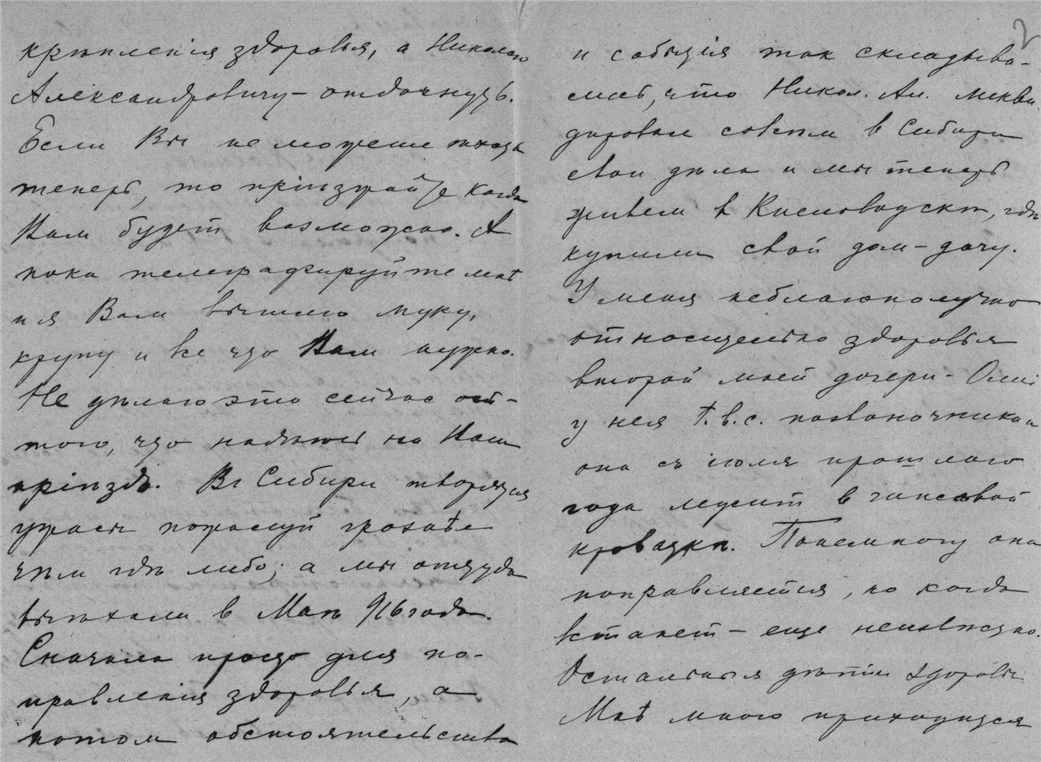 крѣпленія здоровья, а Николаю
Александровичу – отдохнуть.
Если Вы не можете
теперь, то пріѣзжайте когда
Вам будет возможно. А
пока телеграфируйте мнѣ
и я Вам вышлю муку,
крупу и все что Вам нужно.
Не дѣлаю это сейчас от-
того, что надѣюсь на Ваш
пріѣздъ. Въ Сибири творятся
ужасы пожалуй
чѣм гдѣ либо; а мы оттуда
выѣхали в Маѣ 916 года.
Сначала просто для по-
правленія здоровья, а
потом обстоятельства
2
и событія так складыва-
лись, что Никол. Ал. ликви-
дировал совсѣм в Сибири
свои дѣла и мы теперь
живем в Кисловодскѣ, гдѣ
купили свой дом-дачу.
У меня неблагополучно
относительно здоровья
второй моей дочери – Оли:
у нея t.b.c. позвоночника и
она съ іюля прошлаго
года лежит в гипсовой
кроваткѣ. Понемногу она
поправляется, но когда
встанет – еще неизвѣстно.
Остальныя дѣти здоровы.
Мнѣ много приходится